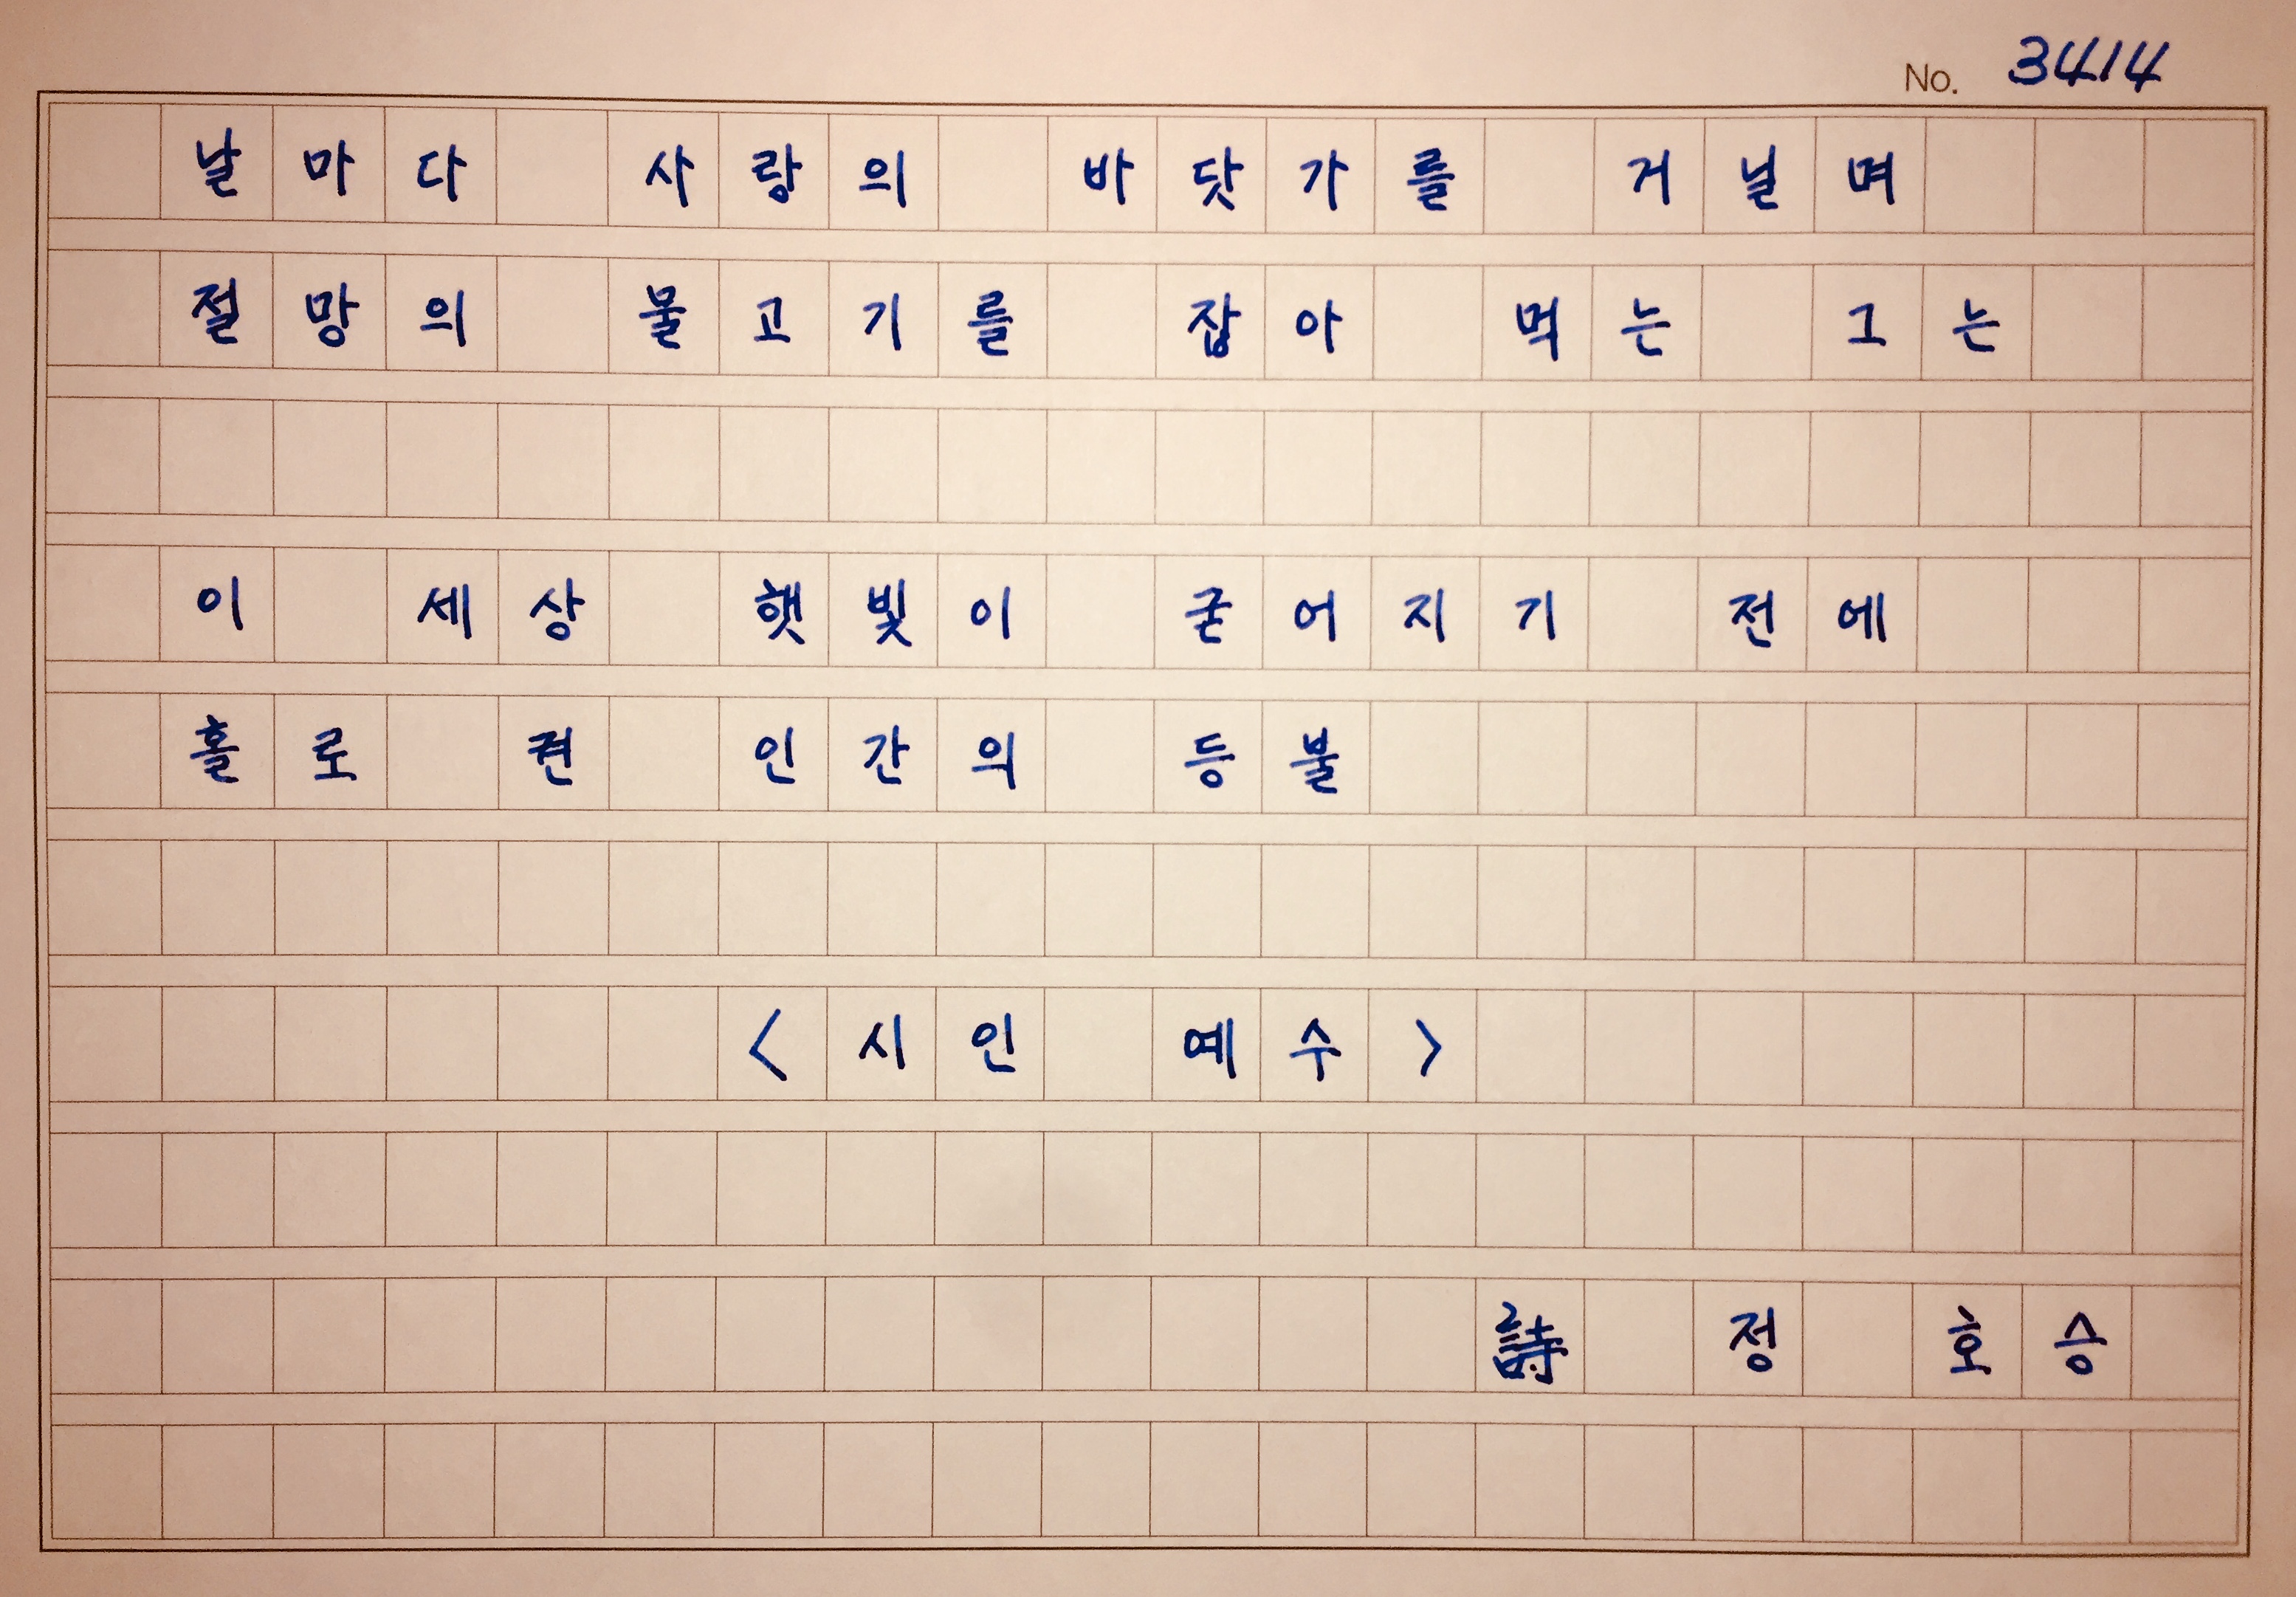 No. 3414
날마다 사랑의 바닷가를 거닐며
절망의 물고기를 잡아 먹는 그는
이 세상 햇빛이 굳어지기 전에
홀로 켠 인간의 등불
<시인 예수>
詩 정 호승